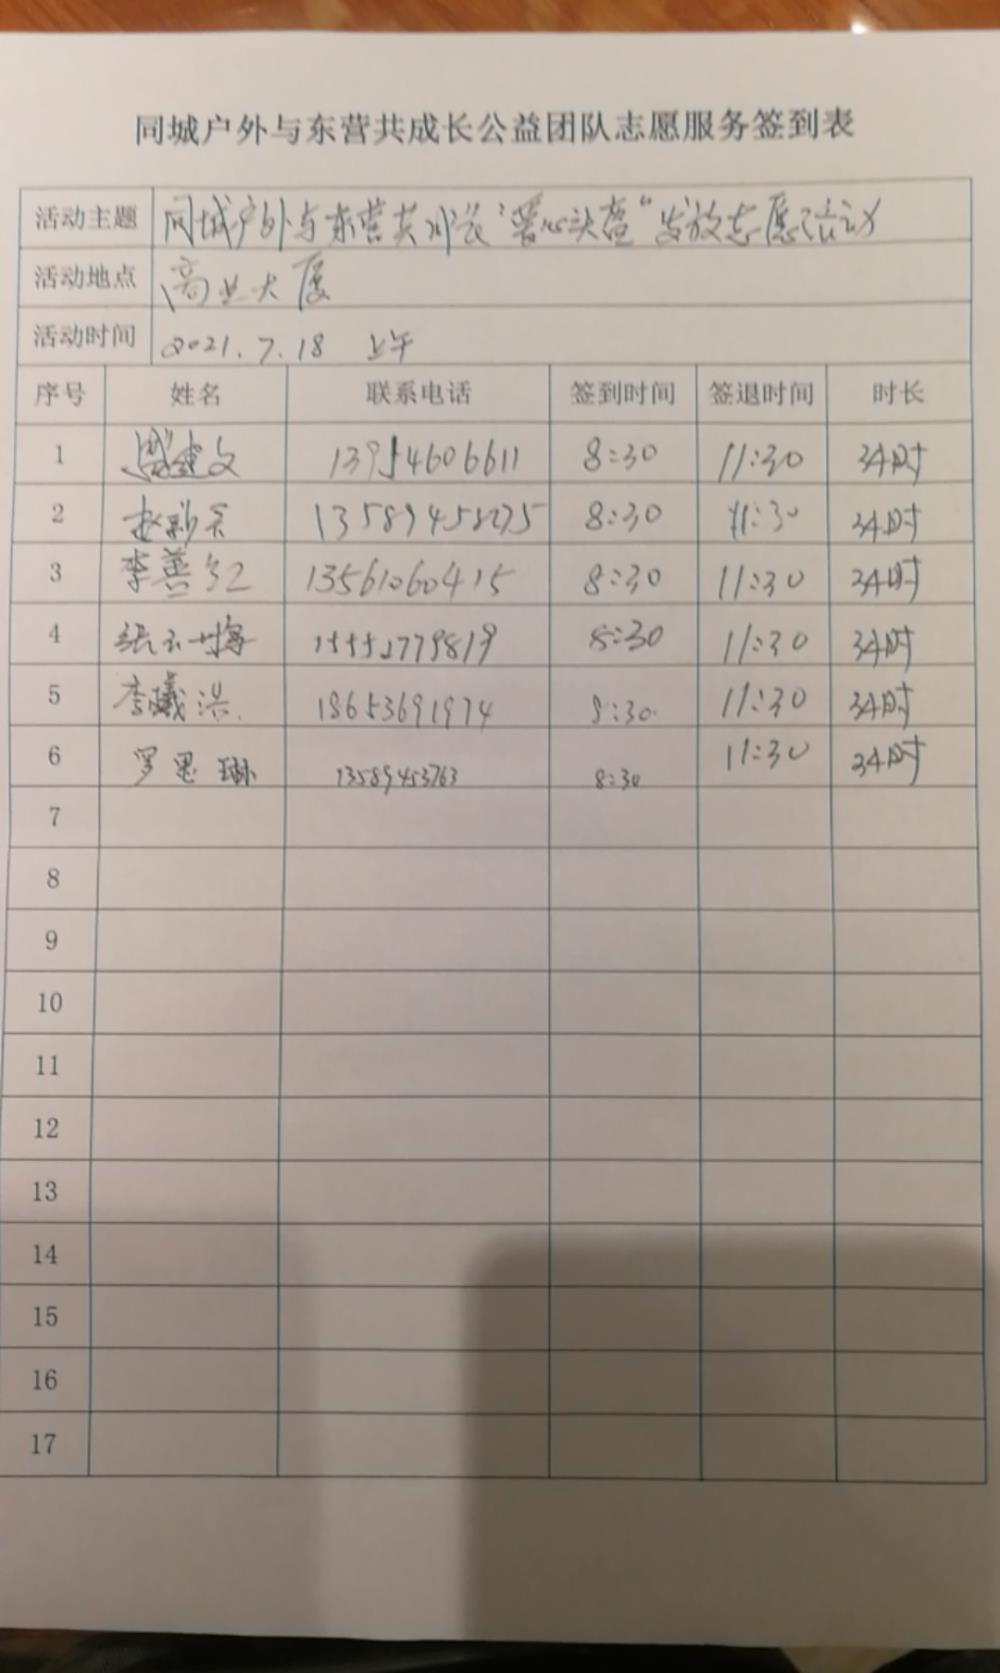 同城户外与东营共成长公益团队志愿服务签到表
活动主题 同城户外与东营共成长"爱心头盔"发放志愿活动
活动地点 商业大厦
活动时间 2021.7.18 上午
序号 姓名 联系电话 签到时间 签退时间 时长
1 建文 13954606611 8:30 11:30 3小时
2 赵新 8:30 11:30 3小时
3 李善红 13561060415 8:30 11:30 3小时
4 张 8:30 11:30 3小时
5 李曦浩 18653691974 8:30 11:30 3小时
6 罗思琳 13589453763 8:30 11:30 3小时
7
8
9
10
11
12
13
14
15
16
17